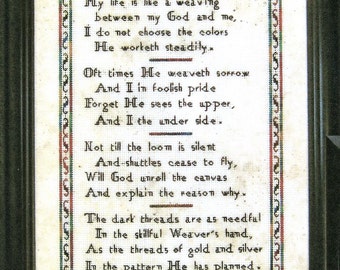 My life is like a weaving
between my God and me,
I do not choose the colors
He worketh steadily.
Oft times He weaveth sorrow
And I in foolish pride
Forget He sees the upper,
And I the under side.
Not till the loom is silent
And shuttles cease to fly,
Will God unroll the canvas
And explain the reason why.
The dark threads are as needful
In the skillful Weaver's hand,
As the threads of gold and silver
In the pattern He has planned.